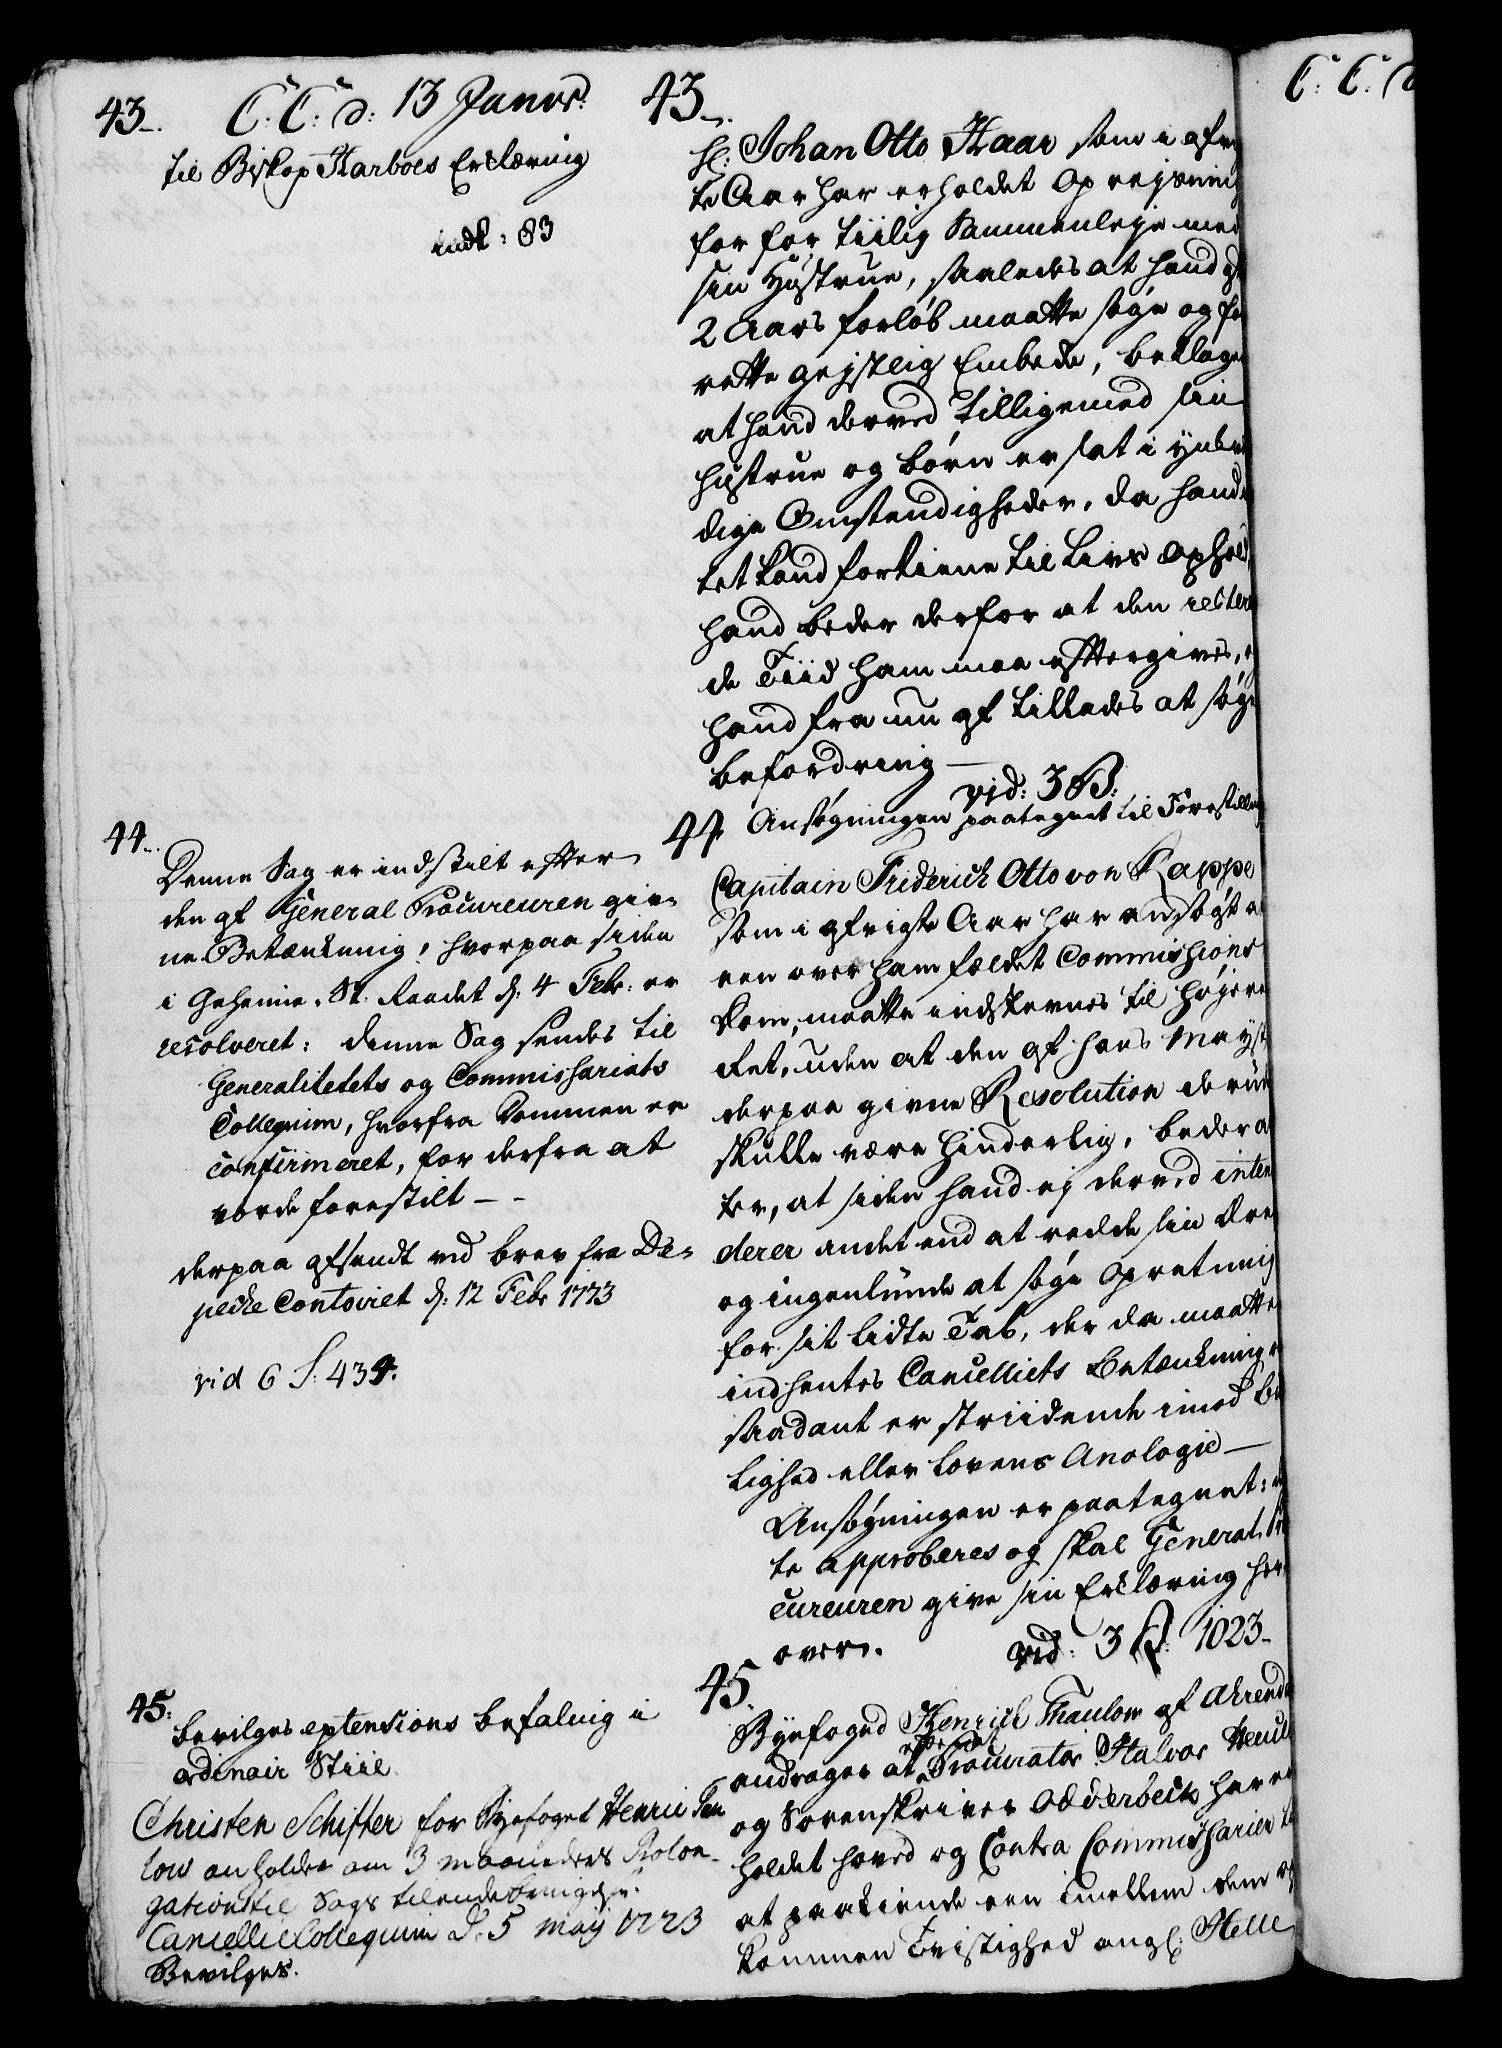 43.
C: C: d: 13 Janvr:
til Biskop Harboes Erklæring
indk: 83
44.
Denne Sag er indstilt efter
den af General Procureuren giv-
ne Betænkning, hvorpaa siden
i Geheime-St. Raadet d. 4 Febr: er
resolveret: denne Sag sendes til
Generalitetets og Commissariats
Collegium, hvorfra Dommen er
confirmeret, for derfra at
vorde forestilt - -
derpaa afsendt ved brev fra De-
peche Contoiret d: 12 Febr 1773
vid 6 S: 434.
45:
bevilges extensions befaling i
ordinair Stiil.
Christen Schifter for Byefoget Henric Tau
low anholder om 3 maaneders Prolon-
gation til Sags tilendebringelse.
Cancellie Collegium D. 5 maij 1773
Bevilges.
43.
Hl: Johan Otto Haar som i afvig
te Aar har erholdet Opreysning
for for tiilig Sammenleye med
sin Hustrue, saaledes at hand eft
2 Aars forløb maatte søge og for
rette geystlig Embede, beklager
at hand derved tilligemed sin
hustrue og børn er sat i ynkvær
dige Omstendigheder, da hand in
tet kand fortiene til Livs ophold,
hand beder derfor at den resteren
de Tiid ham maa eftergives, og
hand fra nu af tillades at søge
befordring —
vid: 3 B:
Ansøgningen paategnet til Forestilling
44
Capitain Friderich Otto von Rappe
som i afvigte Aar har ansøgt at
een over ham fældet Commissions
Dom, maatte indstevnes til høyere
Ret, uden at den af hans Mayst
derpaa givne Resolution derud
skulle være hinderlig, beder at
ter, at siden hand ej derved inten
derer andet end at redde sin Ære
og ingenlunde at søge Opretning
for sit lidte Tab, der da maatte
indhentes Cancelliets Betænkning om
saadant er striidende imod Bil
lighed eller Lovens Anologie —
Ansøgningen er paategnet:
te approberes og skal General Pro
cureuren give sin Erklæring her
over.
vid: 3 B: 1023-
45.
Byefoged Henrich Thaulow af Ahrendal
andrager at Procurator Halvor
og Sorenskriver Odderbech har er
holdet hoved og Contra Commissarier til
at paakiende een imellem dem op
kommen Tvistighed angl: Helle
C: C: d